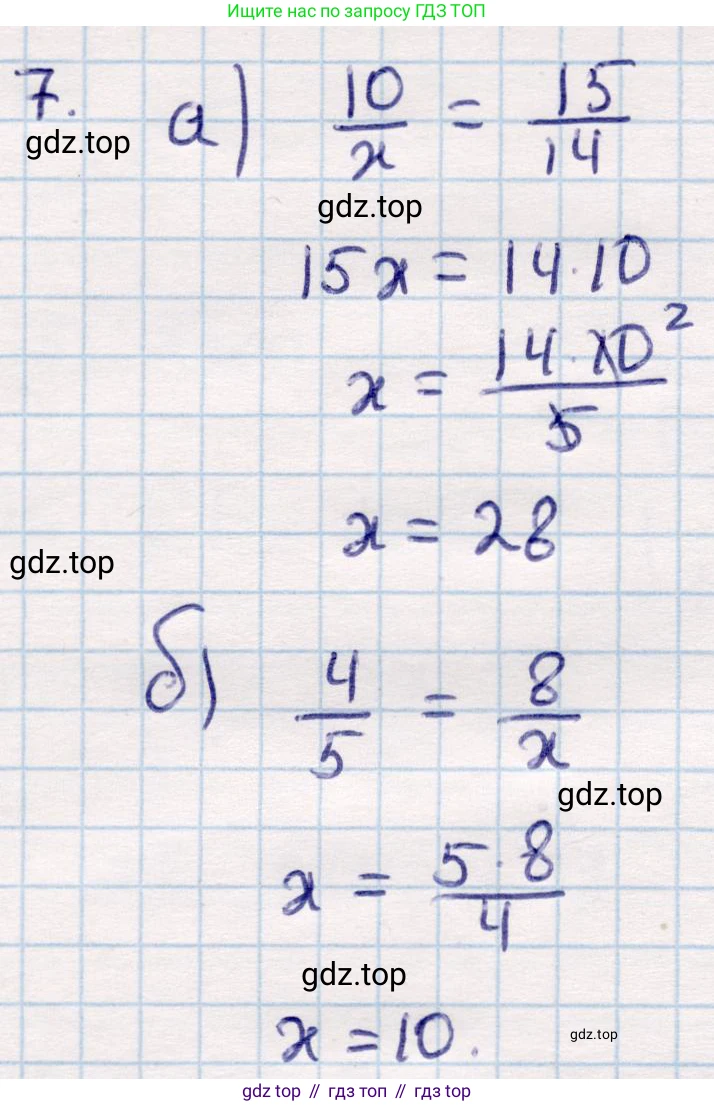 Ищите нас по запросу ГДЗ ТОП
7. а) 10/x = 15/14
gdz.top
gdz.top
15x = 14·10
x = 14·10²/5
x = 28
gdz.top
б) 4/5 = 8/x
gdz.top
x = 5·8/4
gdz.top
x = 10.
gdz.top
gdz top // гдз топ // gdz.top